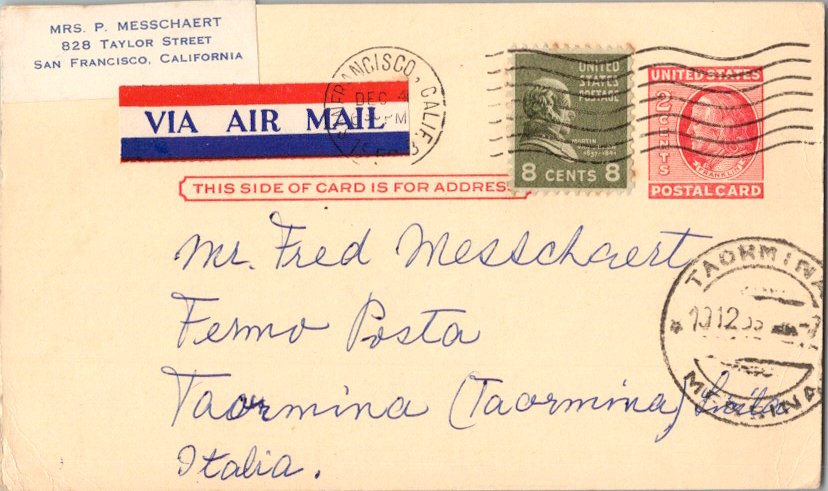 MRS. P. MESSCHAERT
828 TAYLOR STREET
SAN FRANCISCO, CALIFORNIA
VIA AIR MAIL
FRANCISCO, CALIF.
DEC 4
PM
UNITED
STATES
POSTAGE
MARTIN
8 CENTS 8
UNITED STATES
2 CENTS
FRANKLIN
POSTAL CARD
THIS SIDE OF CARD IS FOR ADDRESS
Mr. Fred Messchaert
Fermo Posta
Taormina (Taormina)
Italia.
TAORMINA
MESSINA